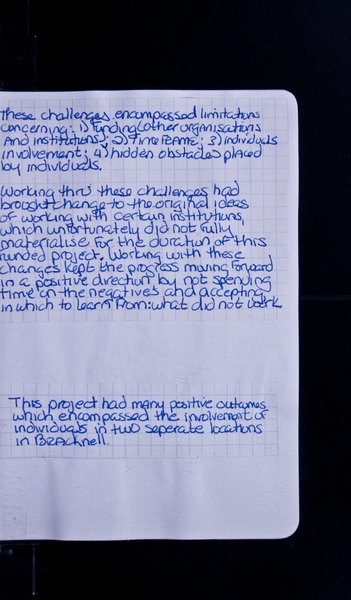 These challenges encompassed limitations
concerning: 1) funding (other organisations
And institutions); 2) Timeframe; 3) individuals
involvement; 4) hidden obstacles placed
by individuals.
Working thru these challenges had
brought change to the original ideas
of working with certain institutions,
which unfortunately did not fully
materialise for the duration of this
funded project. Working with these
changes kept the progress moving forward
in a positive direction by not spending
time on the negatives and accepting
in which to learn from: what did not work
This project had many positive outcomes
which encompassed the involvement of
individuals in two seperate locations
in Bracknell.